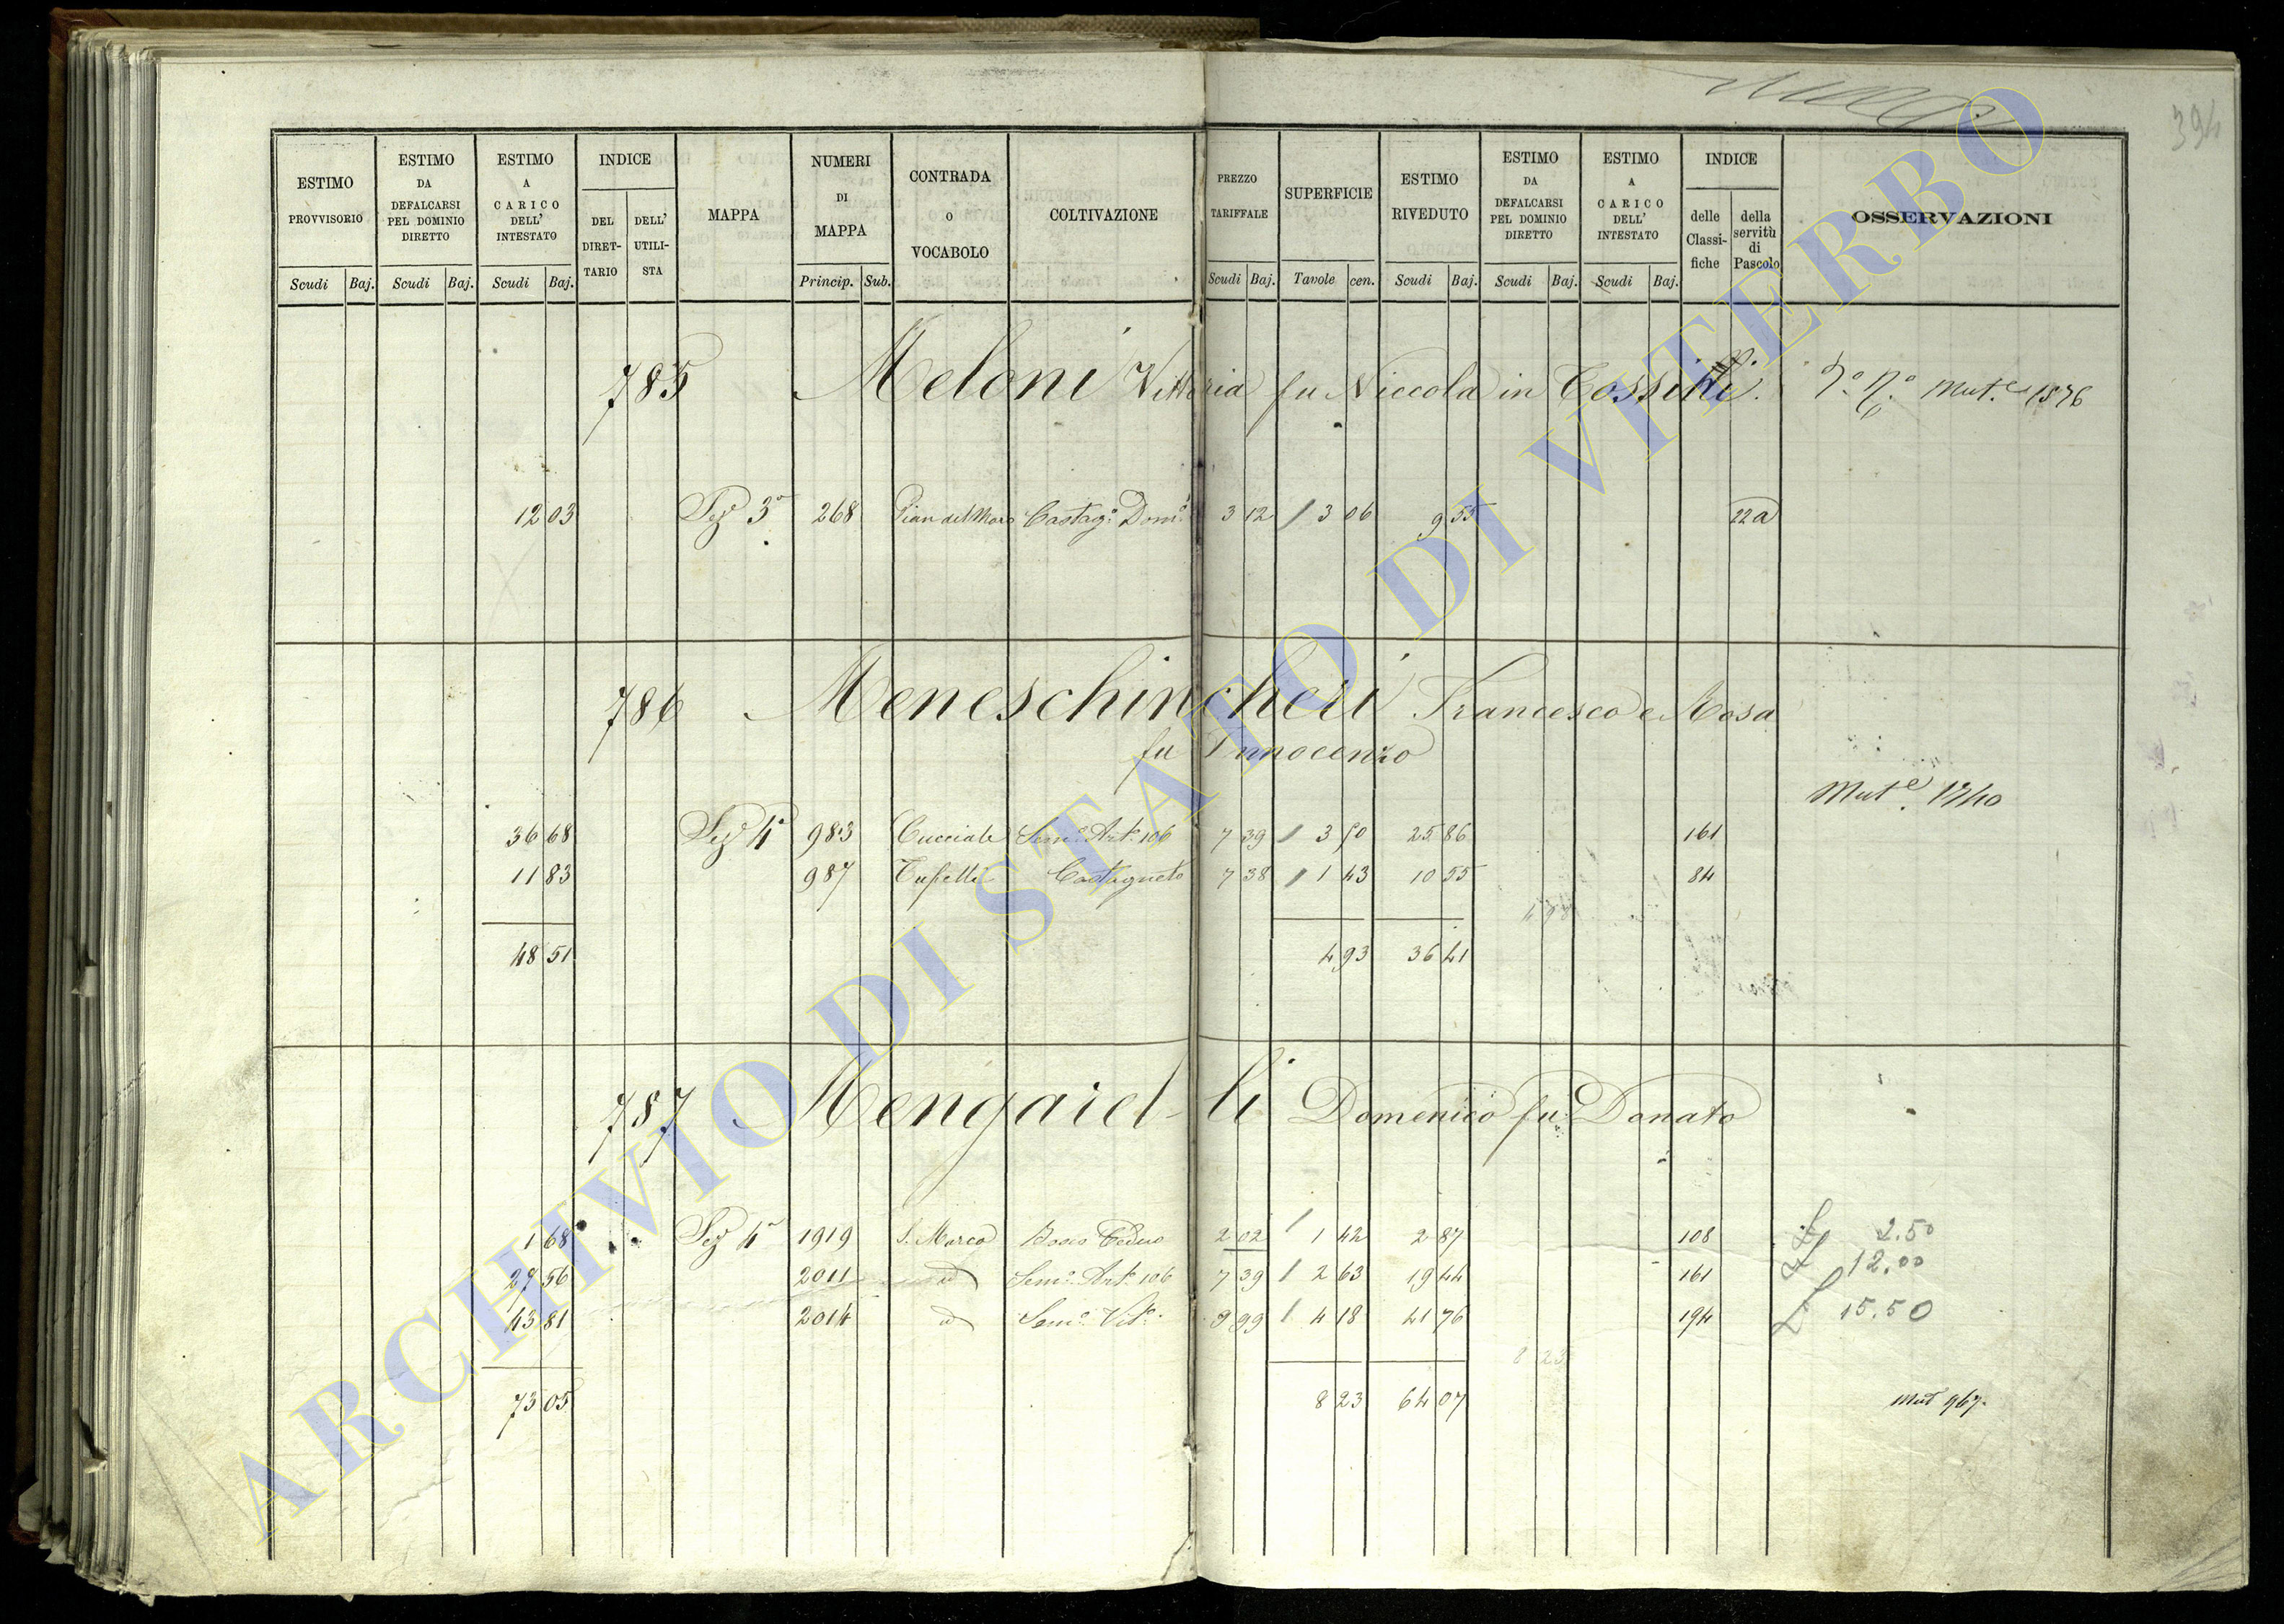 394
ESTIMO PROVVISORIO Scudi Baj.
ESTIMO DA DEFALCARSI PEL DOMINIO DIRETTO Scudi Baj.
ESTIMO A CARICO DELL' INTESTATO Scudi Baj.
INDICE DEL DIRET-TARIO DELL' UTILI-STA
MAPPA
NUMERI DI MAPPA Princip. Sub.
CONTRADA O VOCABOLO
COLTIVAZIONE
PREZZO TARIFFALE Scudi Baj.
SUPERFICIE Tavole cen.
ESTIMO RIVEDUTO Scudi Baj.
ESTIMO DA DEFALCARSI PEL DOMINIO DIRETTO Scudi Baj.
ESTIMO A CARICO DELL' INTESTATO Scudi Baj.
INDICE delle Classi-fiche della servitù di Pascolo
OSSERVAZIONI
785 Meloni Vittoria fu Niccola in Mut.e 1576
12 03 Sez.e 3a 268 Castag.o Dom.o 3 12 3 06 9 55 22a
786 Meneschincheri Francesco e Rosa
fu Innocenzo
Mut.e 1740
36 68 Sez.e 4a 983 Cucciale Sem.o Art.o 106 7 39 3 50 25 86 161
11 83 987 Castagneto 7 38 1 43 10 55 84
48 51 4 93 36 41
787 Mengarel-li Domenico fu Donato
1 68 Sez.e 4a 1919 S. Marco Bosco Ceduo 2 02 1 42 2 87 108 £ 2.50
27 56 2011 id Sem.o Art.o 106 7 39 2 63 19 44 161 £ 12.00
43 81 2014 id Sem.o Vit.o 9 99 4 18 41 76 194 £ 15.50
8 23
73 05 8 23 64 07 Mut 967
ARCHIVIO DI STATO DI VITERBO